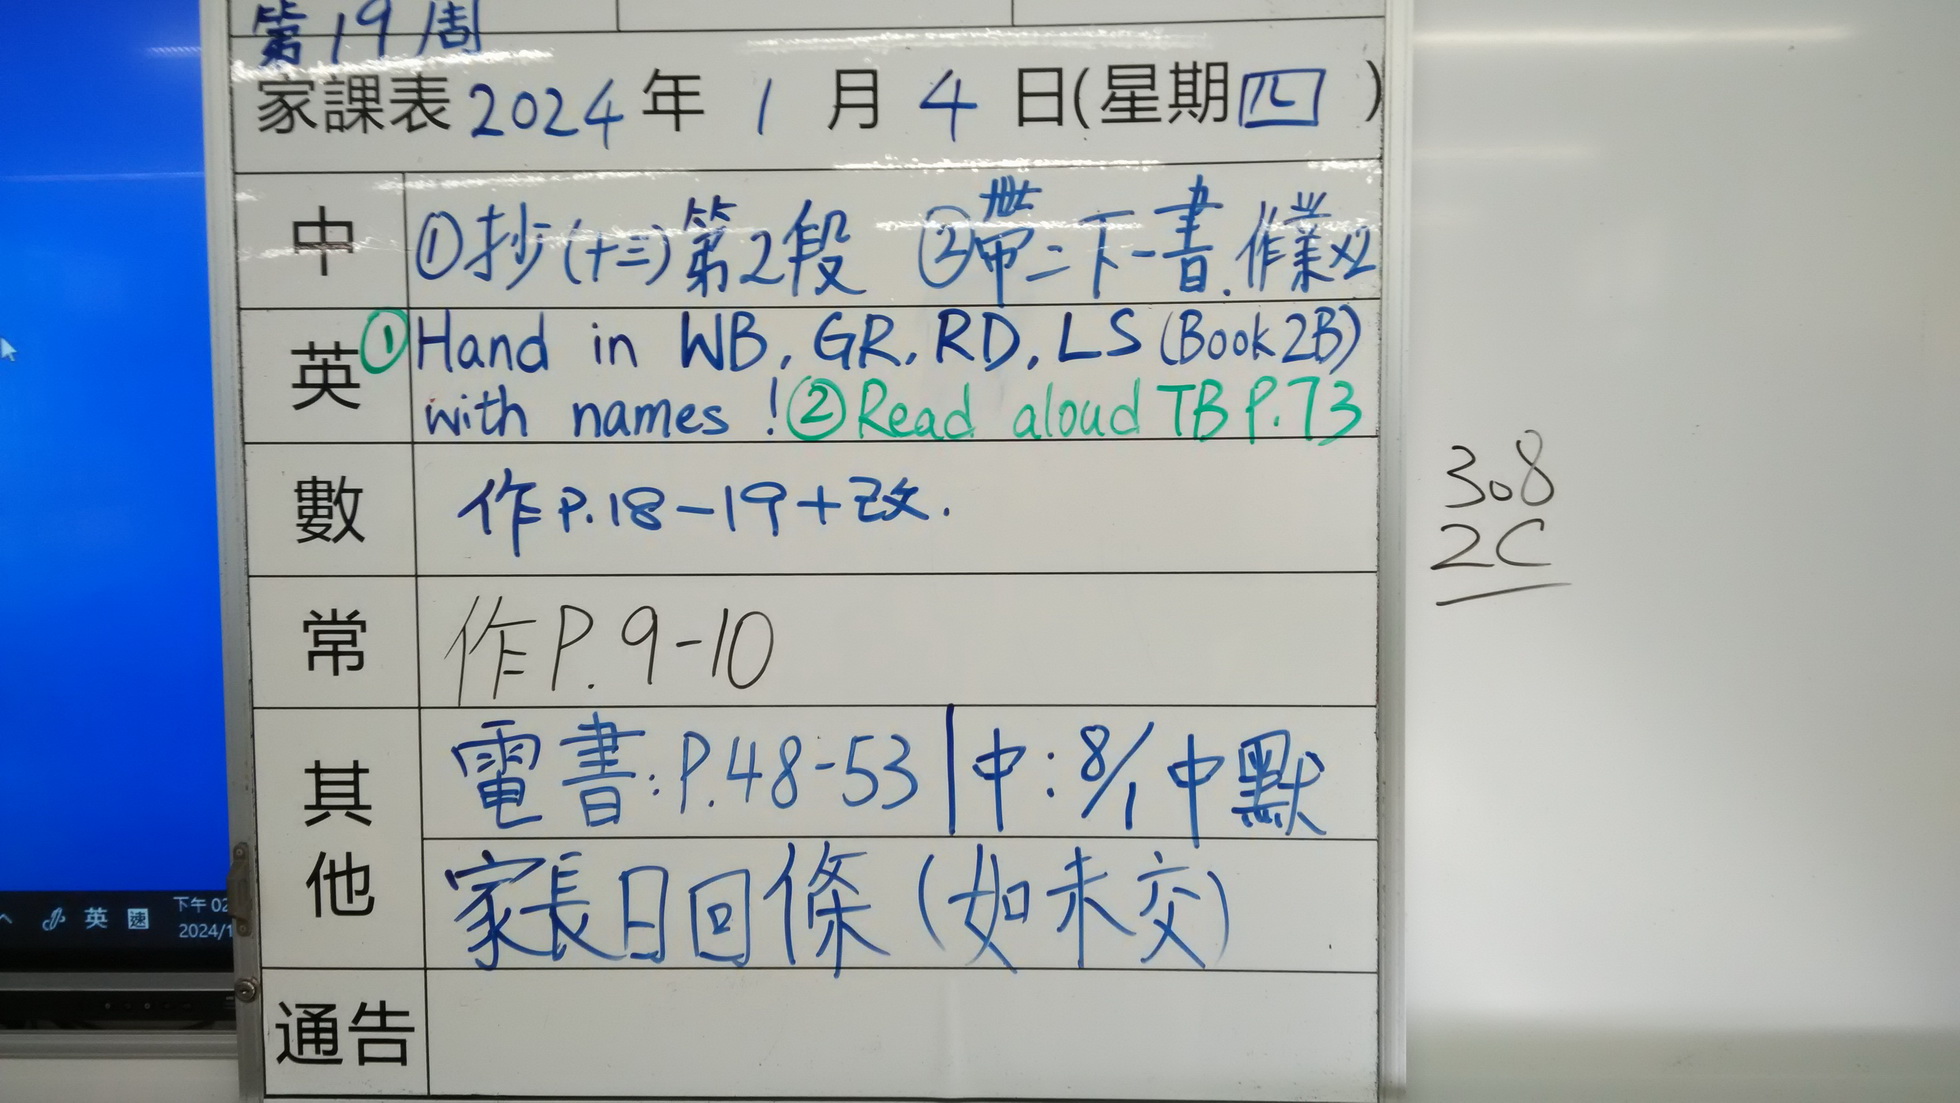 第19周
家課表2024年1月4日(星期四)
中 ①抄(十三)第2段 ②帶二下一書.作業x2
英 ①Hand in WB, GR, RD, LS (Book 2B)
with names! ②Read aloud TB P.73
數 作P.18-19+改.
常 作P.9-10
其他 電書:P.48-53|中:8/1中默
家長日回條(如未交)
通告
3.8
2C
英 速
下午 02
2024/1